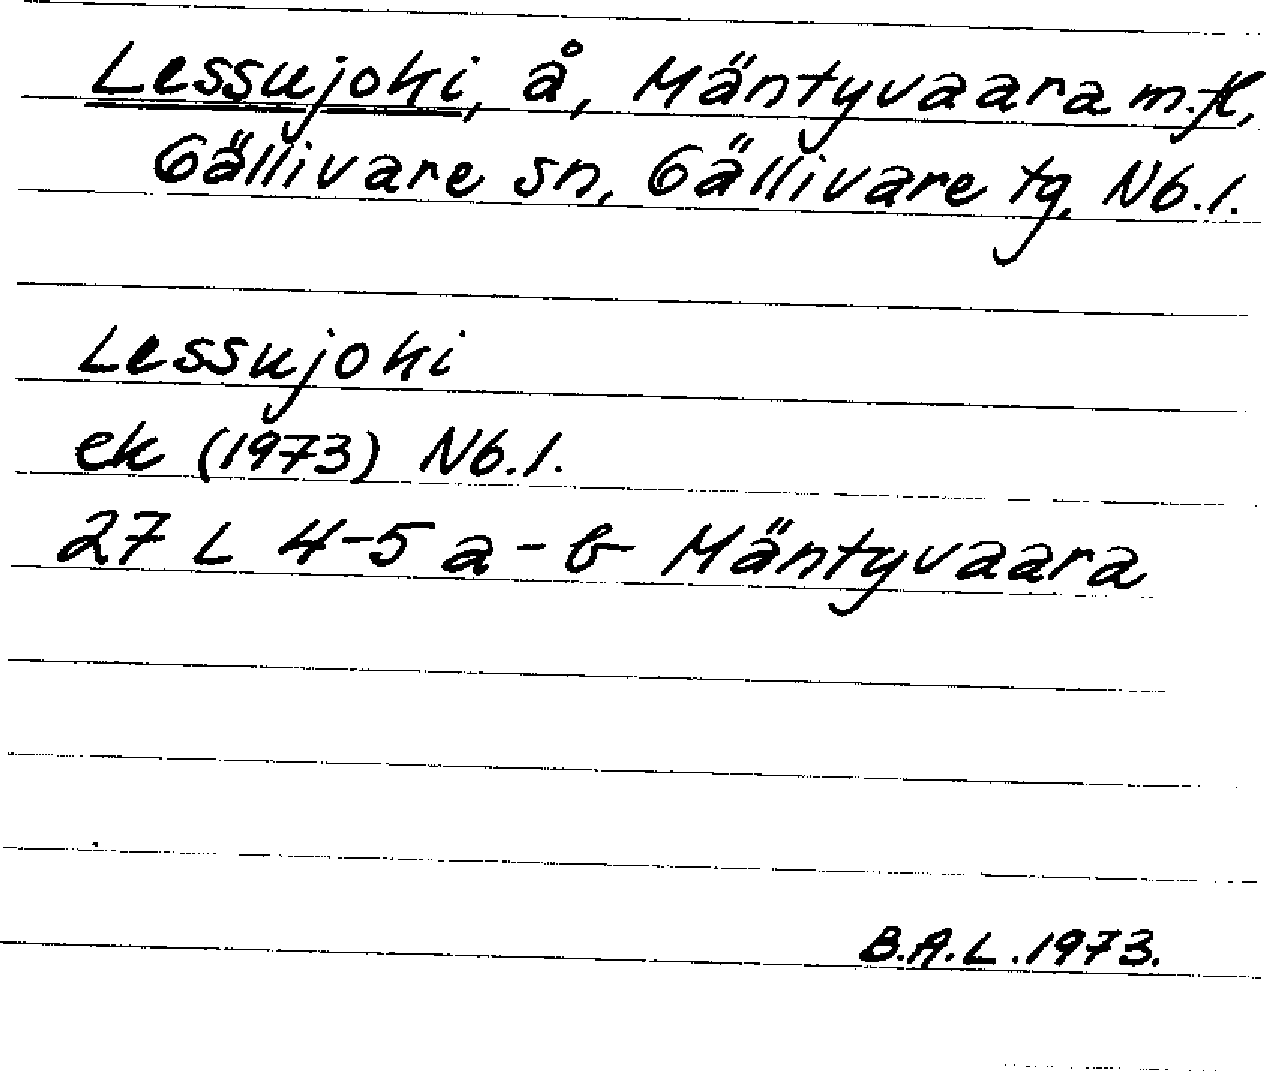 Lessujoki, å, Mäntyvaara m.fl,
Gällivare sn, Gällivare tg, Nb.l.
Lessujoki
ek (1973) Nb.l.
27 L 4-5 a-b Mäntyvaara
B.A.L. 1973.